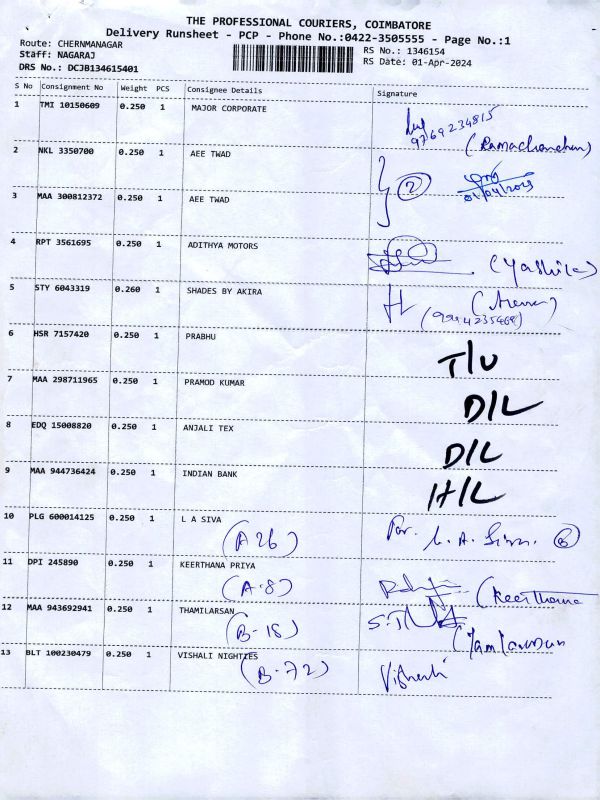 THE PROFESSIONAL COURIERS, COIMBATORE
Delivery Runsheet - PCP - Phone No.:0422-3505555 - Page No.:1
Route: CHERNMANAGAR
Staff: NAGARAJ
DRS No.: DCJB134615401
RS No.: 1346154
RS Date: 01-Apr-2024
S No Consignment No Weight PCS Consignee Details Signature
1 TMI 10150609 0.250 1 MAJOR CORPORATE
9769234815
(Ramachandran)
2 NKL 3350700 0.250 1 AEE TWAD
2
3 MAA 300812372 0.250 1 AEE TWAD
4 RPT 3561695 0.250 1 ADITHYA MOTORS
5 STY 6043319 0.260 1 SHADES BY AKIRA
6 HSR 7157420 0.250 1 PRABHU T/U
7 MAA 298711965 0.250 1 PRAMOD KUMAR D/L
8 EDQ 15008820 0.250 1 ANJALI TEX D/L
9 MAA 944736424 0.250 1 INDIAN BANK H/L
10 PLG 600014125 0.250 1 L A SIVA
(A 26)
11 DPI 245890 0.250 1 KEERTHANA PRIYA
(A-8) (Keerthana
12 MAA 943692941 0.250 1 THAMILARSAN
(B-18)
13 BLT 100230479 0.250 1 VISHALI NIGHTIES
(B-72)